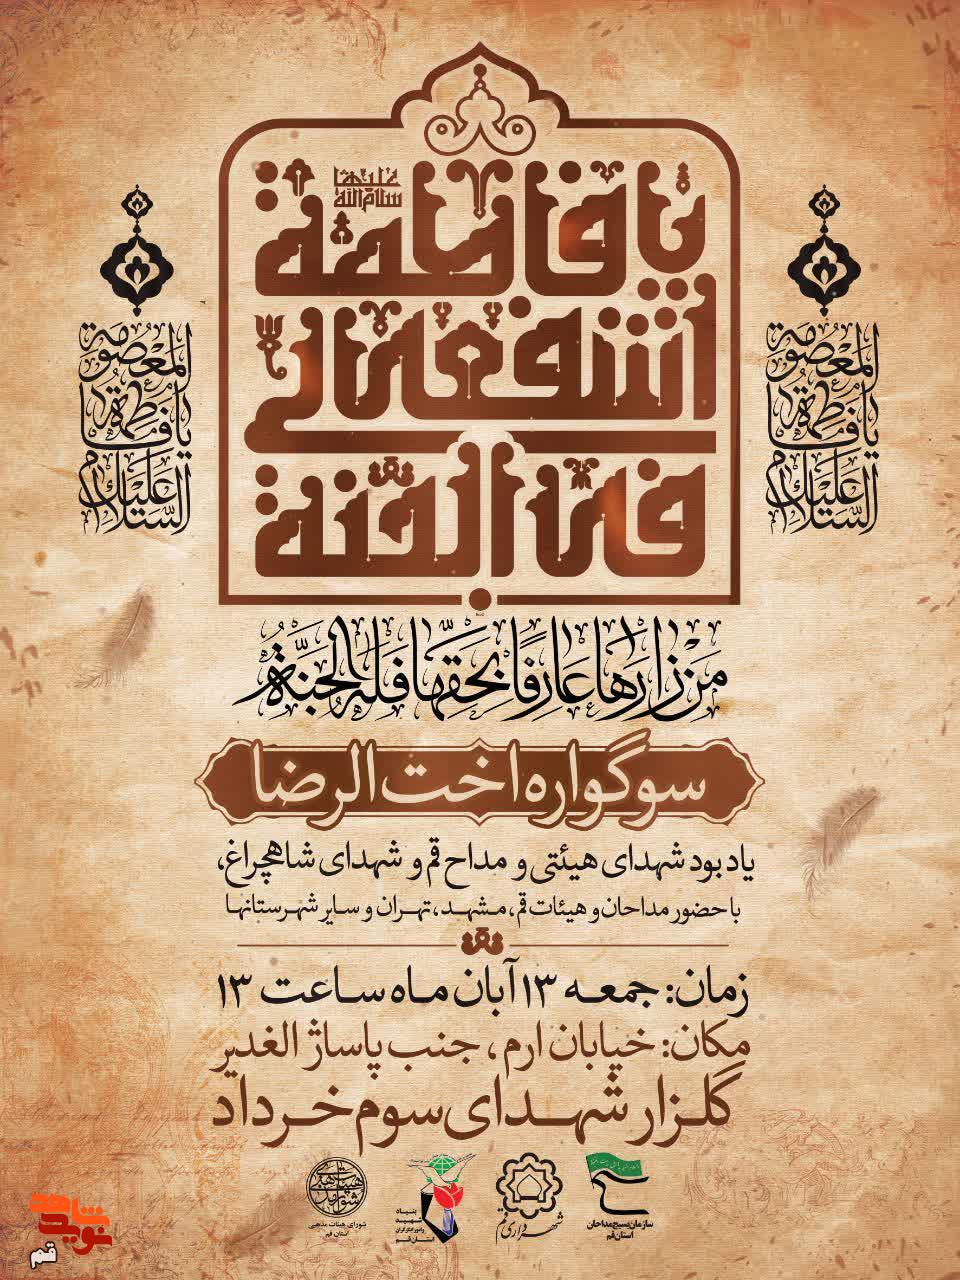 یا فاطمة
علیها
سلام الله
اشفعی لی
فی الجنة
المعصومة
یا فاطمة
السلام علیك
المعصومة
یا فاطمة
السلام علیك
مَنْ زارَها عارِفًا بِحَقِّها فَلَهُ الجَنَّة
سوگواره اخت الرضا
یادبود شهدای هیئتی و مداح قم و شهدای شاهچراغ،
با حضور مداحان و هیئات قم، مشهد، تهران و سایر شهرستانها
زمان: جمعه ۱۳ آبان ماه ساعت ۱۳
مکان: خیابان ارم، جنب پاساژ الغدیر
گلزار شهدای سوم خرداد
سازمان بسیج مداحان
استان قم
شهرداری قم
بنیاد
شهید
و امور ایثارگران
استان قم
شورای هیئات مذهبی
استان قم
نوید شاهد
قم